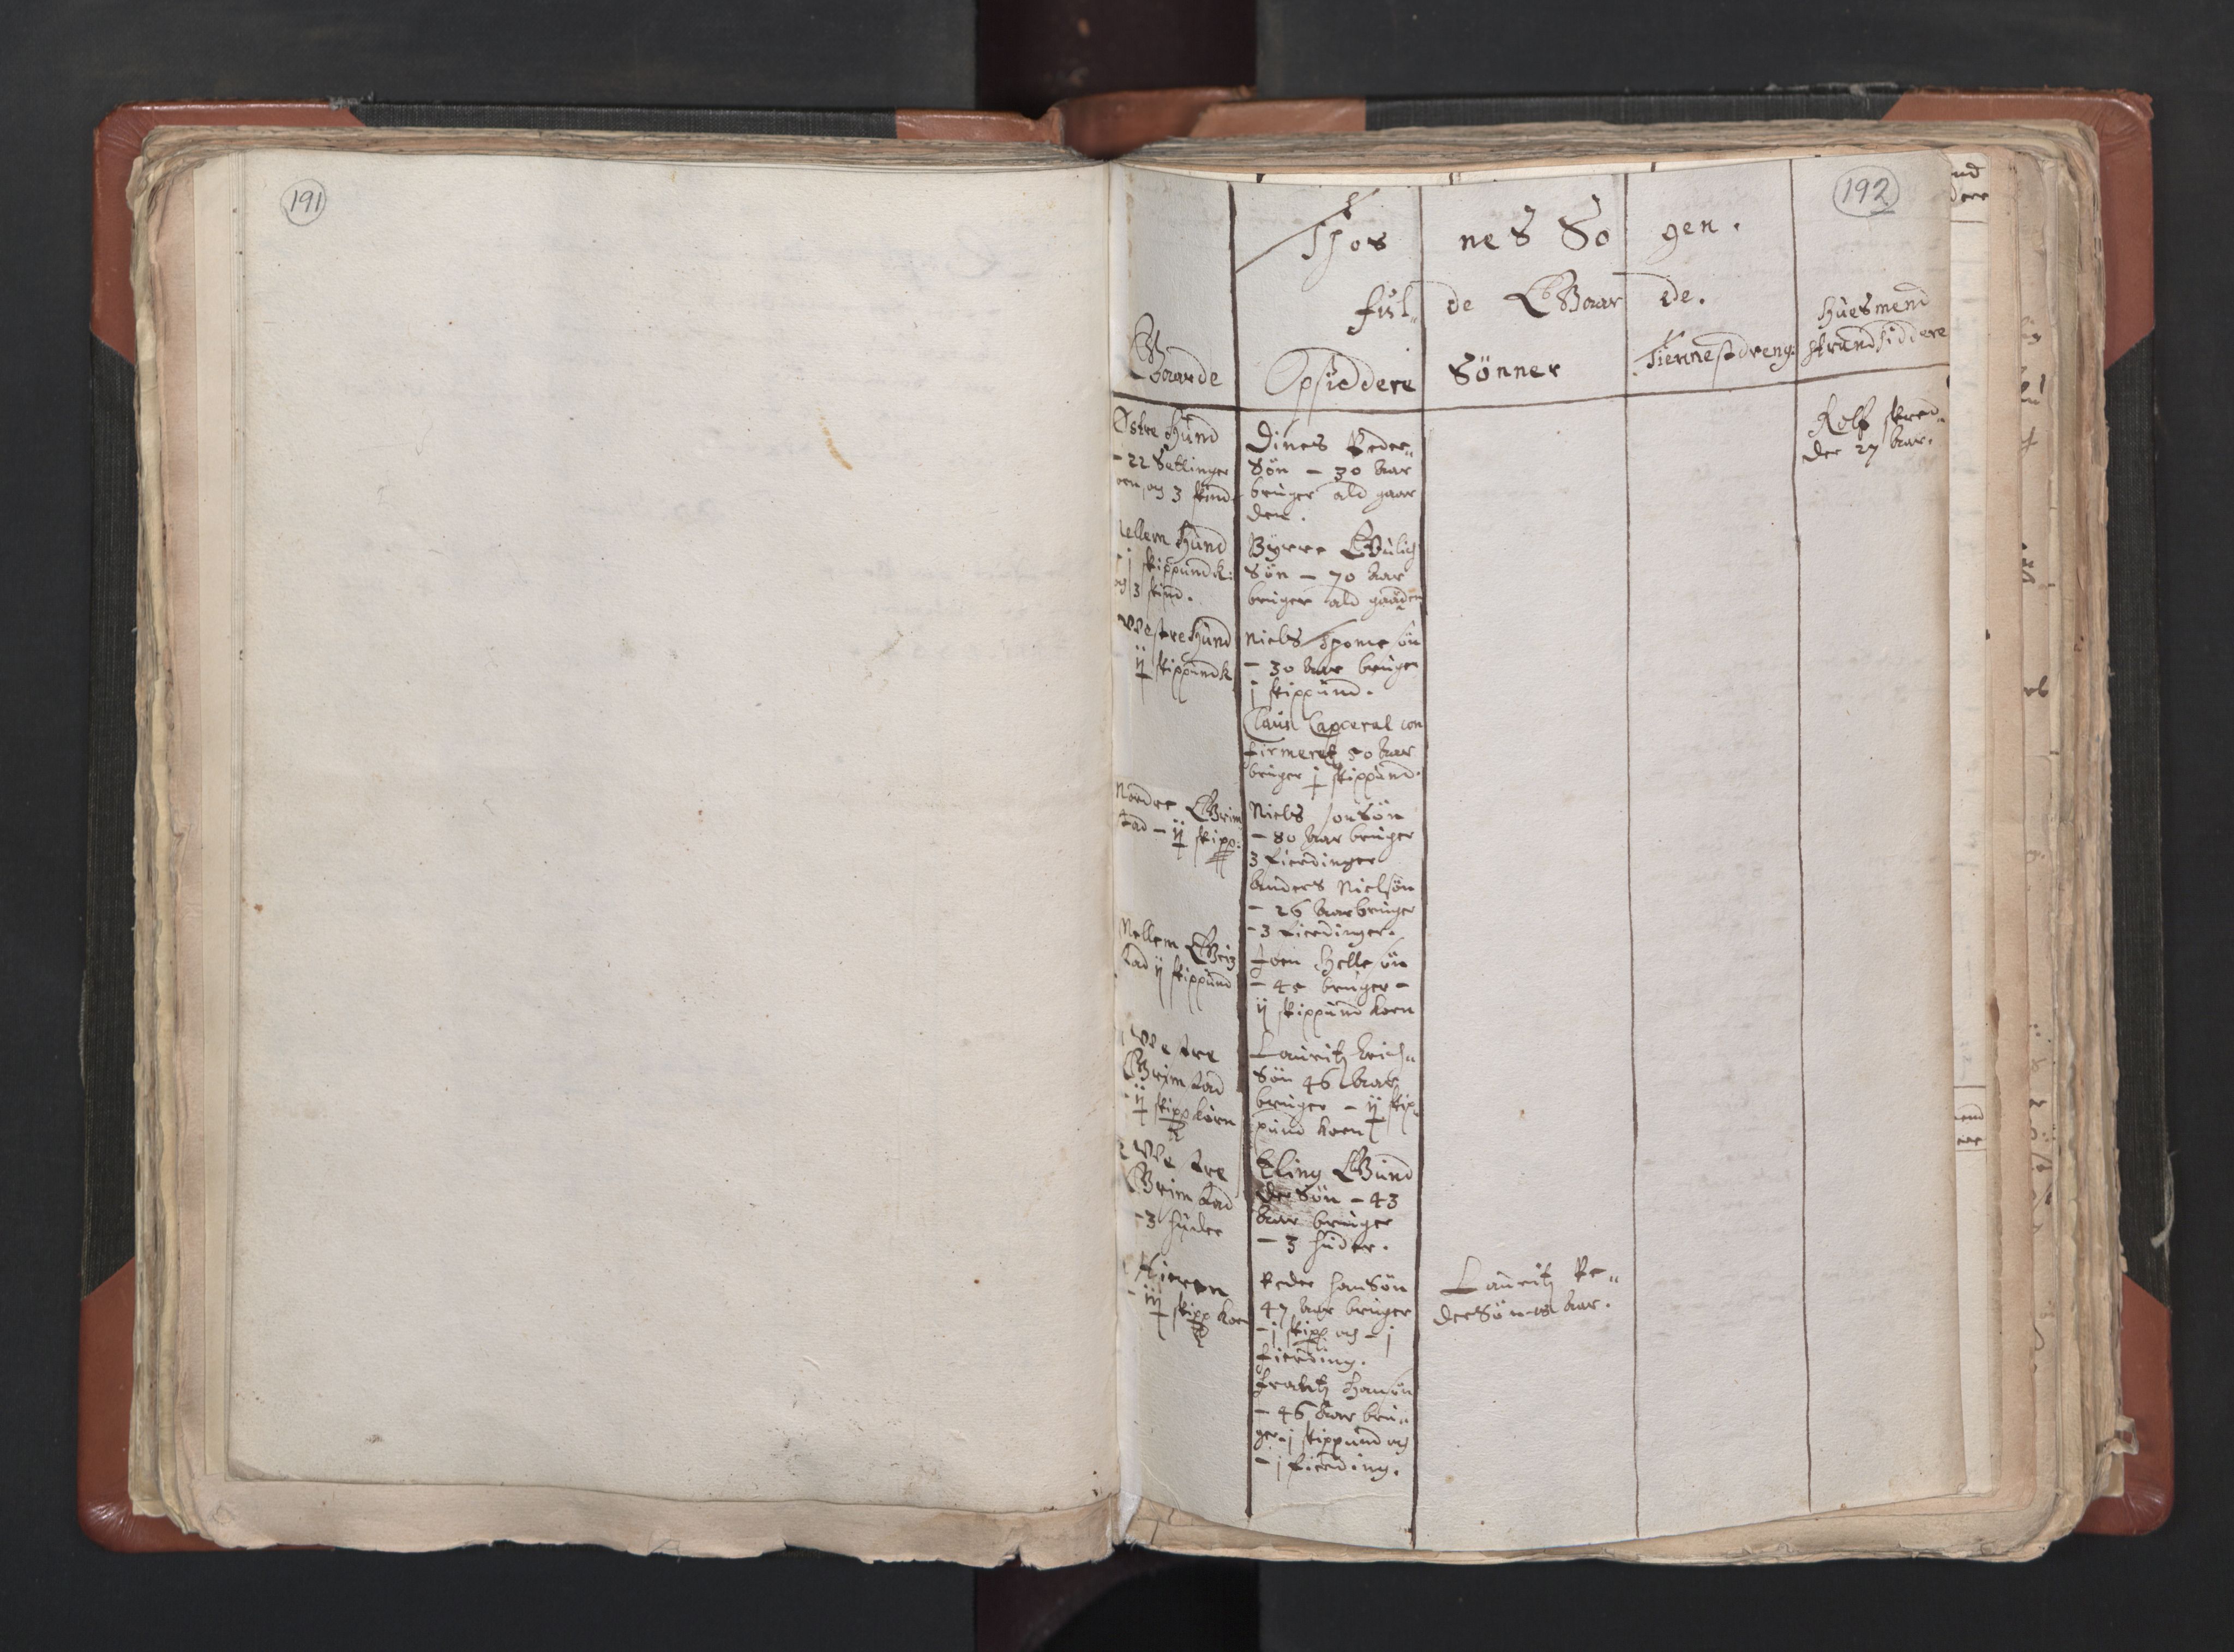 191
192
Thos nes So gen.
ful„ de Gaar de.
Gaarde
Opsiddere
Sönner
Tiennestdreng:
Huesmend
strandsiddere
Østre Hund
– 22 Setlinger
og 3 skind
Dines Peder„
Sön – 30 Aar
bruger ald gaar
den.
Rolf skred„
der 27 Aar.
Mellem Hund
– j skippund k:
og 3 skind.
Byrre
Sön – 70 Aar
bruger ald gaaden
Westre Hund
ij skippund k
Niels Thomesön
– 30 Aar bruger
j skippund.
Claus Capperal con
firmeret 50 Aar
bruger j skippund.
Nordre Grim
stad – ij skipp:
Niels JonSön
– 80 Aar bruger
3 fierdinger
Anders Nielsön
– 26 Aar bruger
– 3 fierdinger.
Mellem Grim
stad ij skippund
Joen Hellesön
– 45 bruger –
ij skippund korn
Westre
Grimstad
– ij skipp korn
Lauritz Erich„
Sön 46 Aar
bruger – ij skip„
pund korn
Westre
Grimstad
– 3 huder
Eling Gund
derSön – 43
Aar bruger
– 3 huder.
– iij skipp korn
Peder HanSön
47 Aar bruger
– j skipp og – j
fierding.
Lauritz Pe„
derSön Aar.
Frantz Hansön
– 46 Aar bru„
ger – j skippund og
– j fierding.